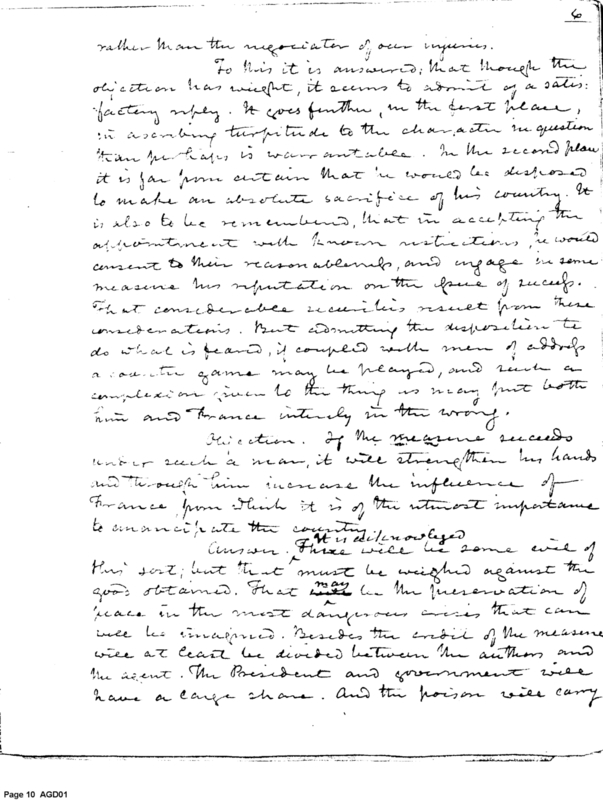 6
rather than the negociator of our injuries.
To this it is answered; that though the
objection has weight, it seems to admit of a satis:
factory reply. It goes further, in the first place,
in ascribing turpitude to the character in question
than perhaps is warrantable. In the second place
it is far from certain that he would be disposed
to make an absolute sacrifice of his country. It
is also to be remembered, that in accepting the
appointment with known instructions, he would
consent to their reasonableness, and engage in some
measure his reputation on the issue of success.
That considerable securities result from these
considerations. But admitting the disposition to
do what is feared, if coupled with men of address
a counter game may be played, and such a
complexion given to the thing as may put both
him and France intirely in the wrong.
Objection. If the measure succeeds
under such a man, it will strengthen his hands
and through him increase the influence of
France from which it is of the utmost importance
to emancipate the country.
It is acknowleged
Answer. There will be some evil of
this sort; but that must be weighed against the
good obtained. That may be the preservation of
peace in the most dangerous crisis that can
well be imagined. Besides the credit of the measure
will at least be divided between the authors and
the agent. The President and government will
have a large share. And the poison will carry
Page 10 AGD01